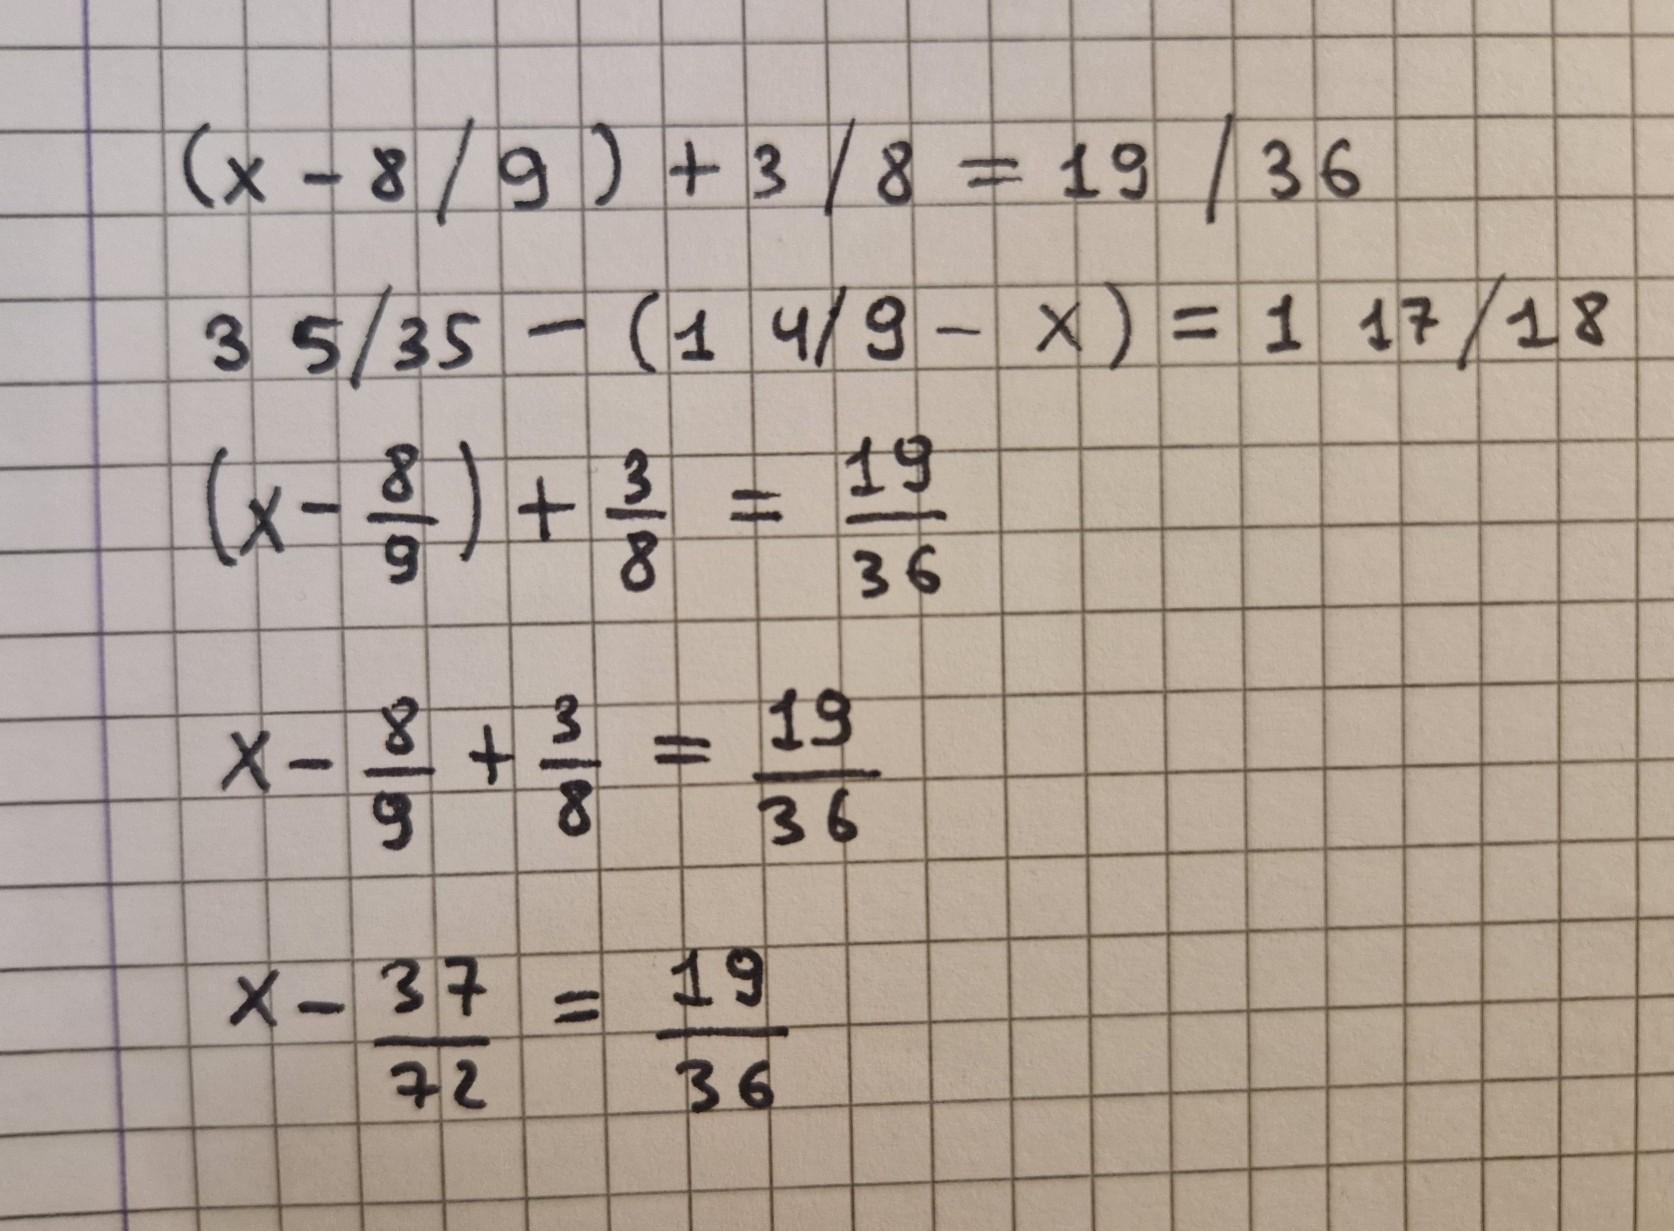 (x - 8/9) + 3/8 = 19/36
3 5/35 - (1 4/9 - x) = 1 17/18
(x - 8/9) + 3/8 = 19/36
x - 8/9 + 3/8 = 19/36
x - 37/72 = 19/36